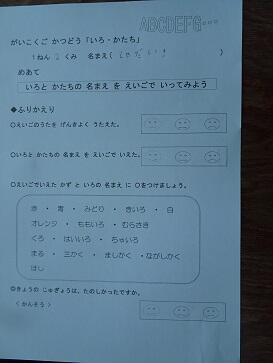 ABCDEFG…
がいこくご かつどう「いろ・かたち」
1ねん 2 くみ 名まえ(
めあて
いろと かたちの 名まえ を えいごで いってみよう
◆ふりかえり
○えいごのうたを げんきよく うたえた。
○いろと かたちの 名まえ を えいごで いえた。
○えいごでいえた かず と いろの 名まえ に ○をつけましょう。
赤 ・ 青 ・ みどり ・ きいろ ・ 白
オレンジ ・ ももいろ ・ むらさき
くろ ・ はいいろ ・ ちゃいろ
まる ・ 三かく ・ ましかく ・ながしかく
ほし
◎きょうの じゅぎょうは、たのしかったですか。
〈 かんそう 〉